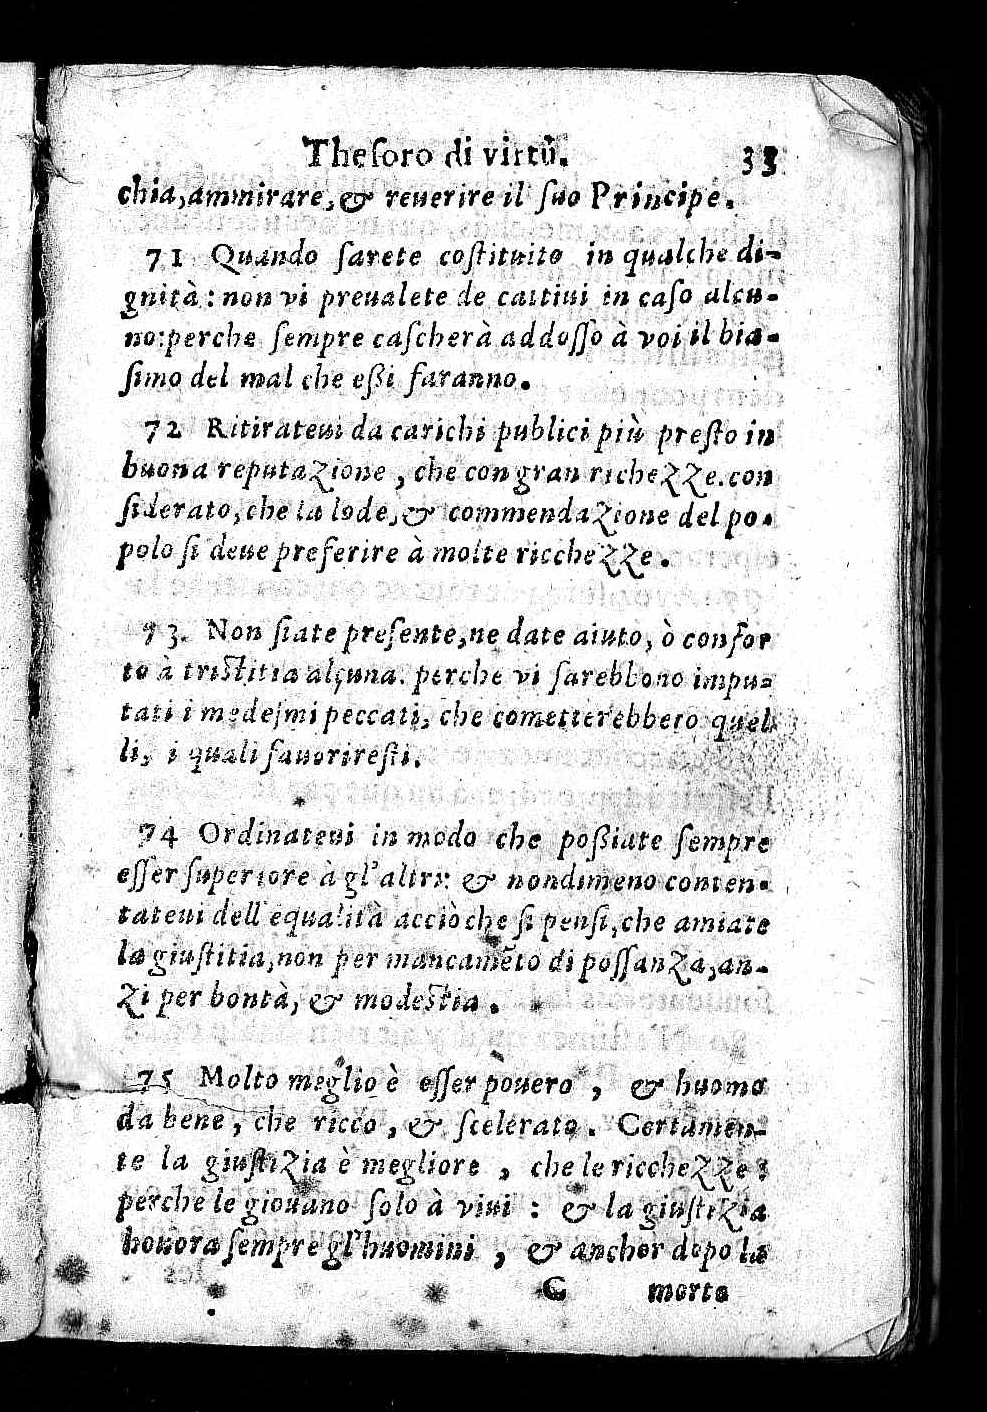 Theſoro di virtù. 33
chia,ammirare,& reuerire il ſuo Principe.
71 Quando ſarete coſtituito in qualche di-
gnità: non vi preualete de cattiui in caſo alcu-
no:perche ſempre caſcherà addoſſo à voi il bia-
ſimo del mal che eßi faranno.
72 Ritirateui da carichi publici più preſto in
buona reputaZione, che con gran richeZZe.con
ſiderato,che la lode,& commendaZione del po-
polo ſi deue preferire à molte riccheZZe.
73. Non ſiate preſente,ne date aiuto, ò confor
to à triſtitia alcuna. perche vi ſarebbono impu-
tati i medeſmi peccati, che cometterebbero quel
li, i quali fauorireſti.
74 Ordinateui in modo che poßiate ſempre
eſſer ſuperiore à gl'altri: & nondimeno conten-
tateui dell'equalità acciò che ſi penſi,che amiate
la giuſtitia,non per mancamẽto di poſſanZa,an-
Zi per bontà, & modeſtia.
75 Molto meglio è eſſer pouero, & huomo
da bene, che ricco, & ſcelerato. Certamen-
te la giuſtiZia è megliore, che le riccheZZe:
perche le giouano ſolo à viui: & la giuſtiZia
honora ſempre gl'huomini, & anchor dopo la
C morte